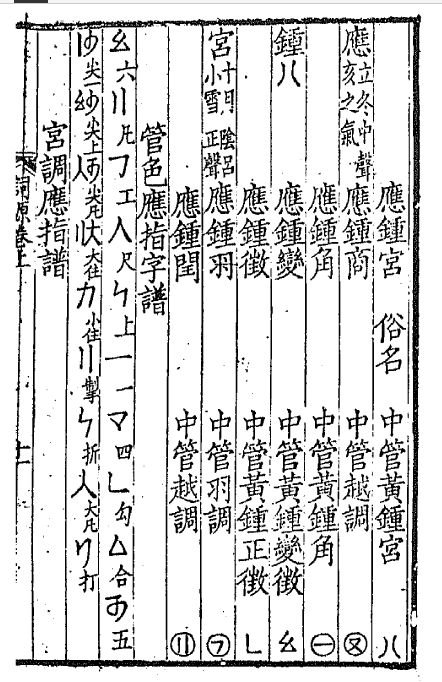 應鍾宮 俗名 中管黃鍾宮 ハ
應 立冬中聲 亥之氣 應鍾商 中管越調
應鍾角 中管黃鍾角 ㊀
鍾八 應鍾變 中管黃鍾變徵 幺
應鍾徵 中管黃鍾正徵 ㄴ
宮 十月陰呂 小雪正聲 應鍾羽 中管羽調 ㋷
應鍾閏 中管越調
管色應指字譜
幺六 〢凡 フ工 人尺 ㄣ上 一一 マ四 ㄴ勾 厶合 五
尖一 尖上 尖凡 大住 力小住 〢掣 ㄣ折 人大凡 リ打
宮調應指譜
詞源卷上
十一